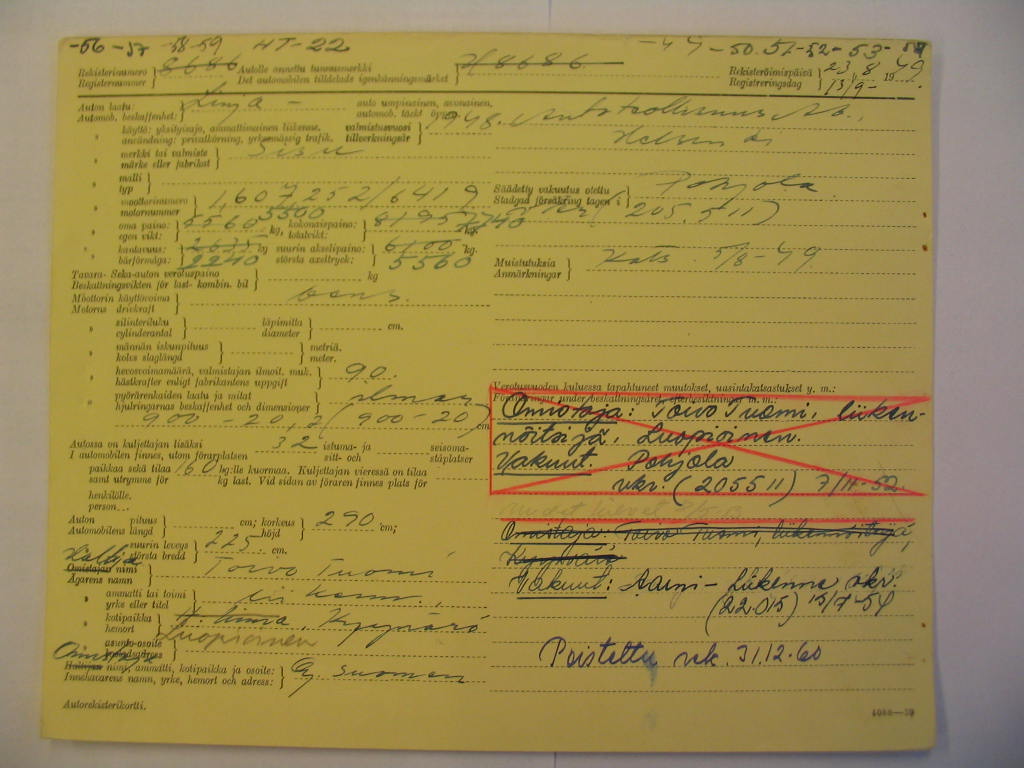 -56 -57 58-59 HT-22 -49-50. 51-52-53-54
Rekisterinumero 8686 Autolle annettu tunnusmerkki H8686 Rekisteröimispäivä 23/8 1949
Registernummer Det automobilen tilldelade igenkänningsmärket Registreringsdag 13/9-
Auton laatu: Linja - auto umpinainen, avonainen,
Automob. beskaffenhet: automob. täckt
käyttö: yksityisajo, ammattimainen liikenne, valmistusvuosi 1948.
användning: privatkörning, yrkesmässig trafik. tillverkningsår
Helsinki
merkki tai valmiste Sisu
märke eller fabrikat
malli
typ
moottorinumero 4607252/6419
motornummer
Säädetty vakuutus otettu Pohjola
Stadgad försäkring tagen i (205511)
oma paino: 5560 5500 kg, kokonaispaino: 8195 7740 kg.
egen vikt: totalvikt:
kantavuus: 2635 kg suurin akselipaino: 6100 kg.
bärförmåga: 2240 största axeltryck: 5560
Muistutuksia Kats. 5/8-49
Anmärkningar
Tavara- Seka-auton verotuspaino kg
Beskattningsvikten för last- kombin. bil
Moottorin käyttövoima bens.
Motorns drivkraft
silinteriluku läpimitta cm.
cylinderantal diameter
männän iskunpituus metriä.
kolvs slaglängd meter.
hevosvoimamäärä, valmistajan ilmoit. muk. 90.
hästkrafter enligt fabrikantens uppgift
pyöränrenkaiden laatu ja mitat ilman
hjulringarnas beskaffenhet och dimensioner
900-20, 2 (900-20) cm
Verotusvuoden kuluessa tapahtuneet muutokset, uusintakatsastukset y. m.:
Förändringar under beskattningsåret, efterbesiktningar m. m.:
Omistaja: Toivo Tuomi, liiken-
nöitsijä, Luopioinen.
Vakuut. Pohjola
vkr. (205511) 7/11-52.
Autossa on kuljettajan lisäksi 32 istuma- ja seisoma-
I automobilen finnes, utom förarplatsen sitt- och ståplatser
paikkaa sekä tilaa 160 kg:lle kuormaa. Kuljettajan vieressä on tilaa
samt utrymme för kg last. Vid sidan av föraren finnes plats för
henkilölle.
person...
Auton pituus cm; korkeus 290 cm;
Automobilens längd höjd
suurin leveys 225 cm.
största bredd
Omistaja: Toivo Tuomi, liikennöitsijä,
Kyynärö
Vakuut: Aarni- Liikenne vkr.
(22.015) 15/7-54
Haltija
Omistajan nimi Toivo Tuomi
Ägarens namn
ammatti tai toimi
yrke eller titel
kotipaikka Kyynärö
hemort Luopioinen
asunto-osoite
bostadsadress
Omistaja
Haltijan nimi, ammatti, kotipaikka ja osoite:
Innehavarens namn, yrke, hemort och adress:
Poistettu rek. 31.12.60
Autorekisterikortti.